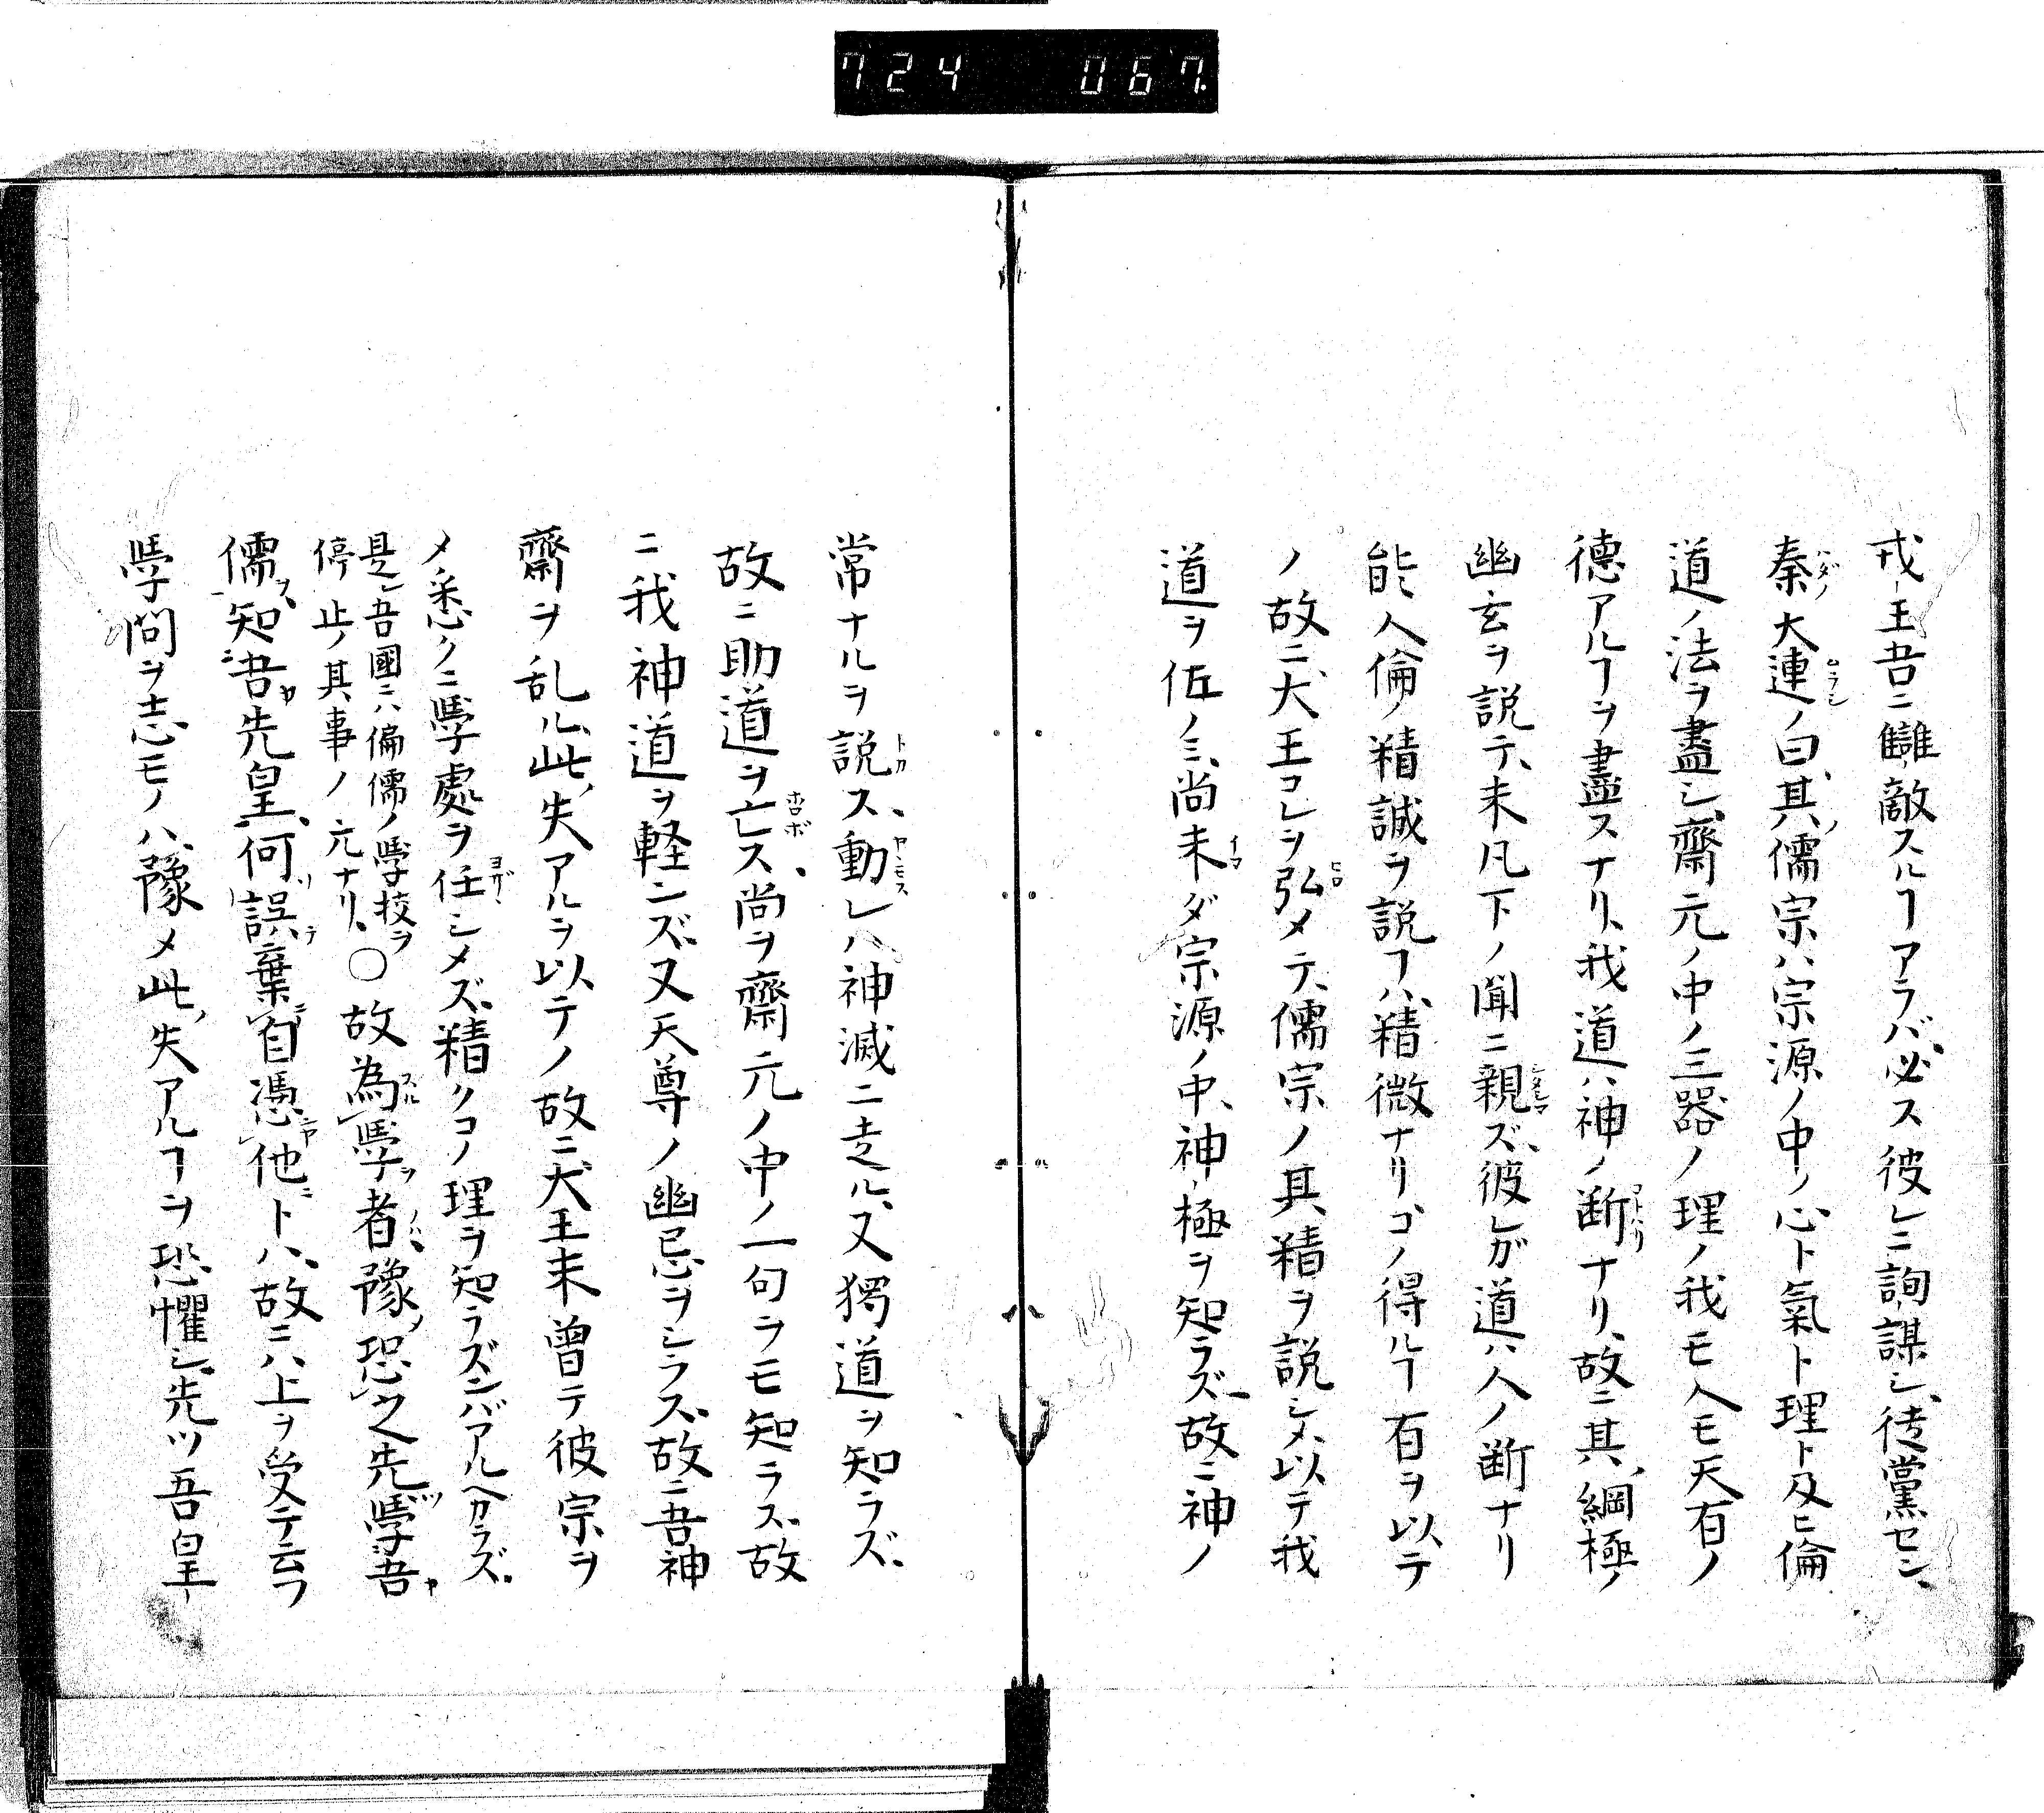 724 067.
戎王吾ニ讎敵スルヿアラバ、必ス彼レニ詢謀シ、徒黨セン、
秦大連ノ曰、其ノ儒宗ハ宗源ノ中ノ心ト氣ト理ト及ヒ倫
道ノ法ヲ盡シ、齋元ノ中ノ三器ノ理ノ我モ人モ天有ノ
德アルヿヲ盡スナリ、我道ハ神ノ断ナリ、故ニ其綱極ノ
幽玄ヲ説テ、未凡下ノ聞ニ親ズ、彼レガ道ハ人ノ断ナリ
能人倫ノ精誠ヲ説フハ、精微ナリ、コノ得ルヿ有ヲ以テ
ノ故ニ、大王コレヲ弘メテ、儒宗ノ其精ヲ説シメ、以テ我
道ヲ佐ノミ、尚未ダ宗源ノ中、神極ヲ知ラズ、故ニ神ノ
常ナルヲ説ス、動レハ神滅ニ走ル、又獨道ヲ知ラズ、
故ニ助道ヲ亡ス、尚ヲ齋元ノ中ノ一句ヲモ知ラス、故
ニ我神道ヲ軽ンズ、又天尊ノ幽忌ヲシラス、故ニ吾神
齋ヲ乱ル、此失アルヲ以テノ故ニ、大王未曾テ彼宗ヲ
メ悉クニ學處ヲ任シメズ、精クコノ理ヲ知ラズンバアルヘカラズ、
是レ吾國ニハ偏儒ノ學校ヲ
停止ノ其事ノ元ナリ、○故為學者豫恐之先學吾
儒知吾先皇何誤棄自憑他トハ、故ニハ上ヲ受テ云フ
學問ヲ志モノハ、豫メ此失アルヿヲ恐懼シ、先ツ吾皇